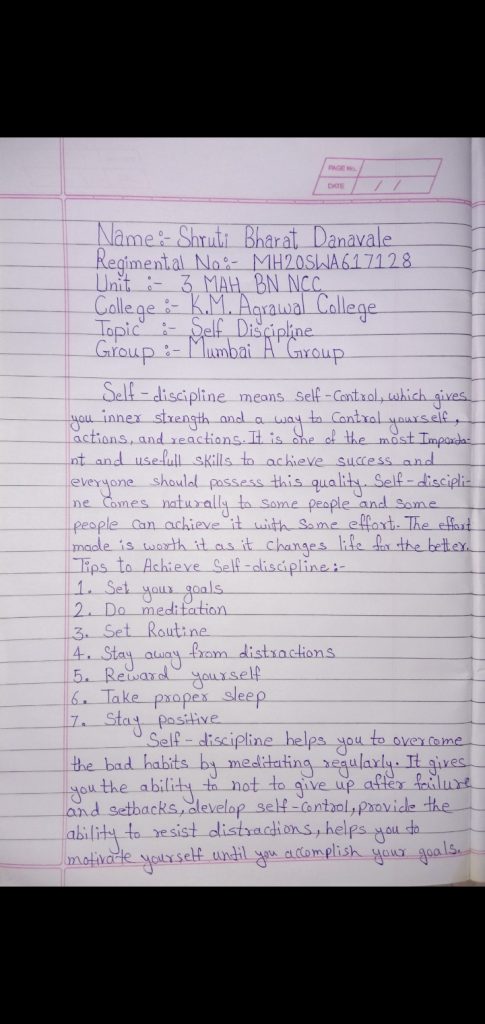 PAGE No.
DATE / /
Name:- Shruti Bharat Danavale
Regimental No:- MH20SWA617128
Unit :- 3 MAH BN NCC
College :- K.M. Agrawal College
Topic :- Self Discipline
Group :- Mumbai A Group
Self-discipline means self-Control, which gives
you inner strength and a way to Control yourself,
actions, and reactions. It is one of the most Importa-
nt and usefull skills to achieve success and
everyone should possess this quality. Self-discipli-
ne Comes naturally to some people and Some
people Can achieve it with Some effort. The effort
made is worth it as it Changes life for the better.
Tips to Achieve Self-discipline:-
1. Set your goals
2. Do meditation
3. Set Routine
4. Stay away from distractions
5. Reward yourself
6. Take proper sleep
7. Stay positive
Self-discipline helps you to overcome
the bad habits by meditating regularly. It gives
you the ability to not to give up after failure
and setbacks, develop self-Control, provide the
ability to resist distractions, helps you to
motivate yourself until you accomplish your goals.